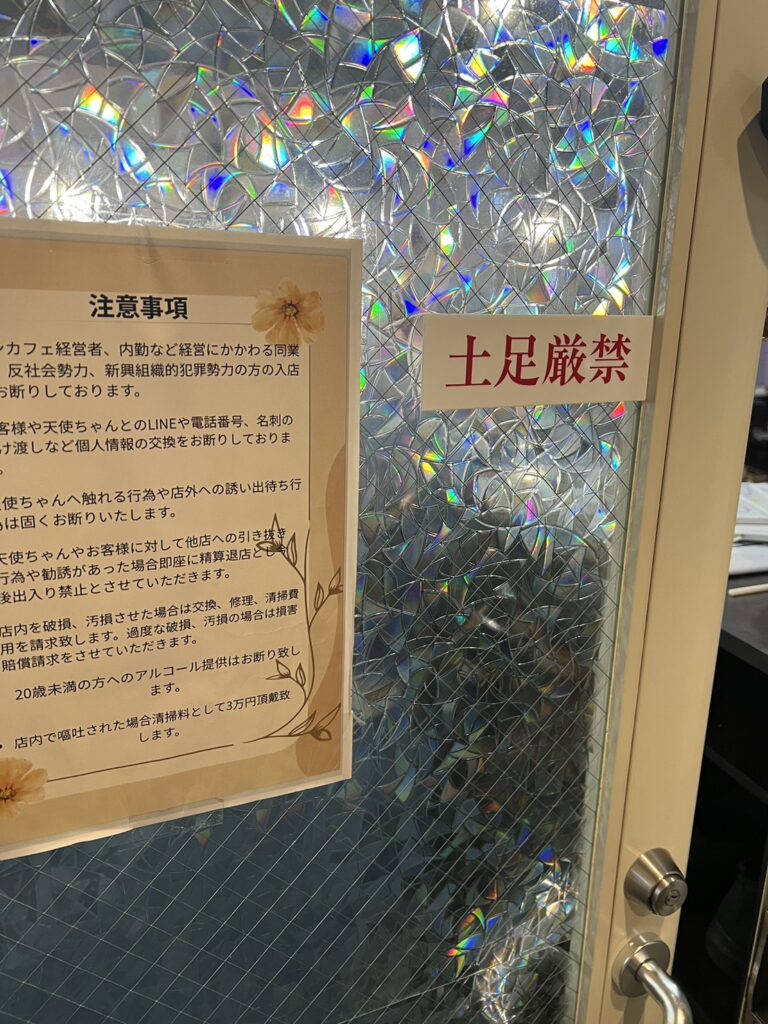 注意事項
ンカフェ経営者、内勤など経営にかかわる同業
反社会勢力、新興組織的犯罪勢力の方の入店
お断りしております。
客様や天使ちゃんとのLINEや電話番号、名刺の
け渡しなど個人情報の交換をお断りしておりま
。
使ちゃんへ触れる行為や店外への誘い出待ち行
為は固くお断りいたします。
天使ちゃんやお客様に対して他店への引き抜き
行為や勧誘があった場合即座に精算退店とし
後出入り禁止とさせていただきます。
店内を破損、汚損させた場合は交換、修理、清掃費
用を請求致します。過度な破損、汚損の場合は損害
賠償請求をさせていただきます。
20歳未満の方へのアルコール提供はお断り致し
ます。
・店内で嘔吐された場合清掃料として3万円頂戴致
します。
土足厳禁